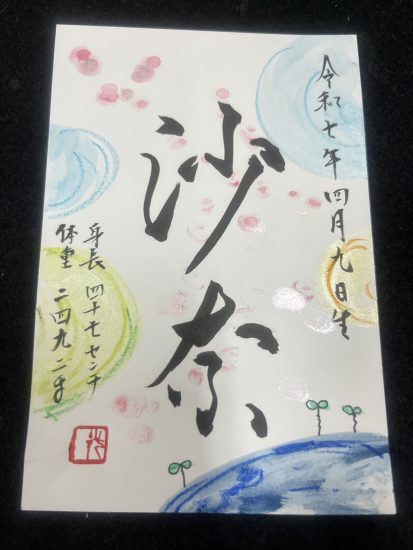 令和七年四月九日生
沙奈
身長 四十七センチ
体重 二四九二g